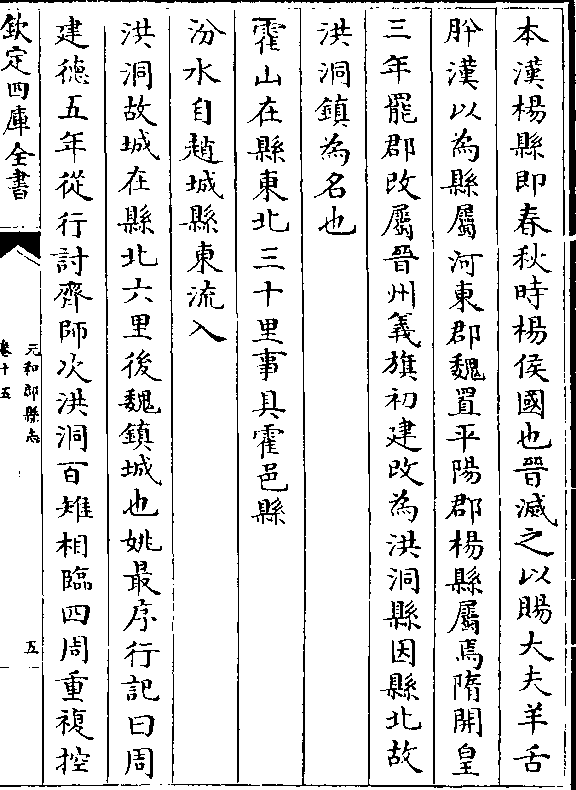 本漢楊縣即春秋時楊侯國也晉滅之以賜大夫羊舌
肸漢以為縣屬河東郡魏置平陽郡楊縣屬焉隋開皇
三年罷郡改屬晉州義旗初建改為洪洞縣因縣北故
洪洞鎮為名也
霍山在縣東北三十里事具霍邑縣
汾水自趙城縣東流入
洪洞故城在縣北六里後魏鎮城也姚最序行記曰周
建德五年從行討齊師次洪洞百雉相臨四周重複控
欽定四庫全書
元和郡縣志
卷十五
五